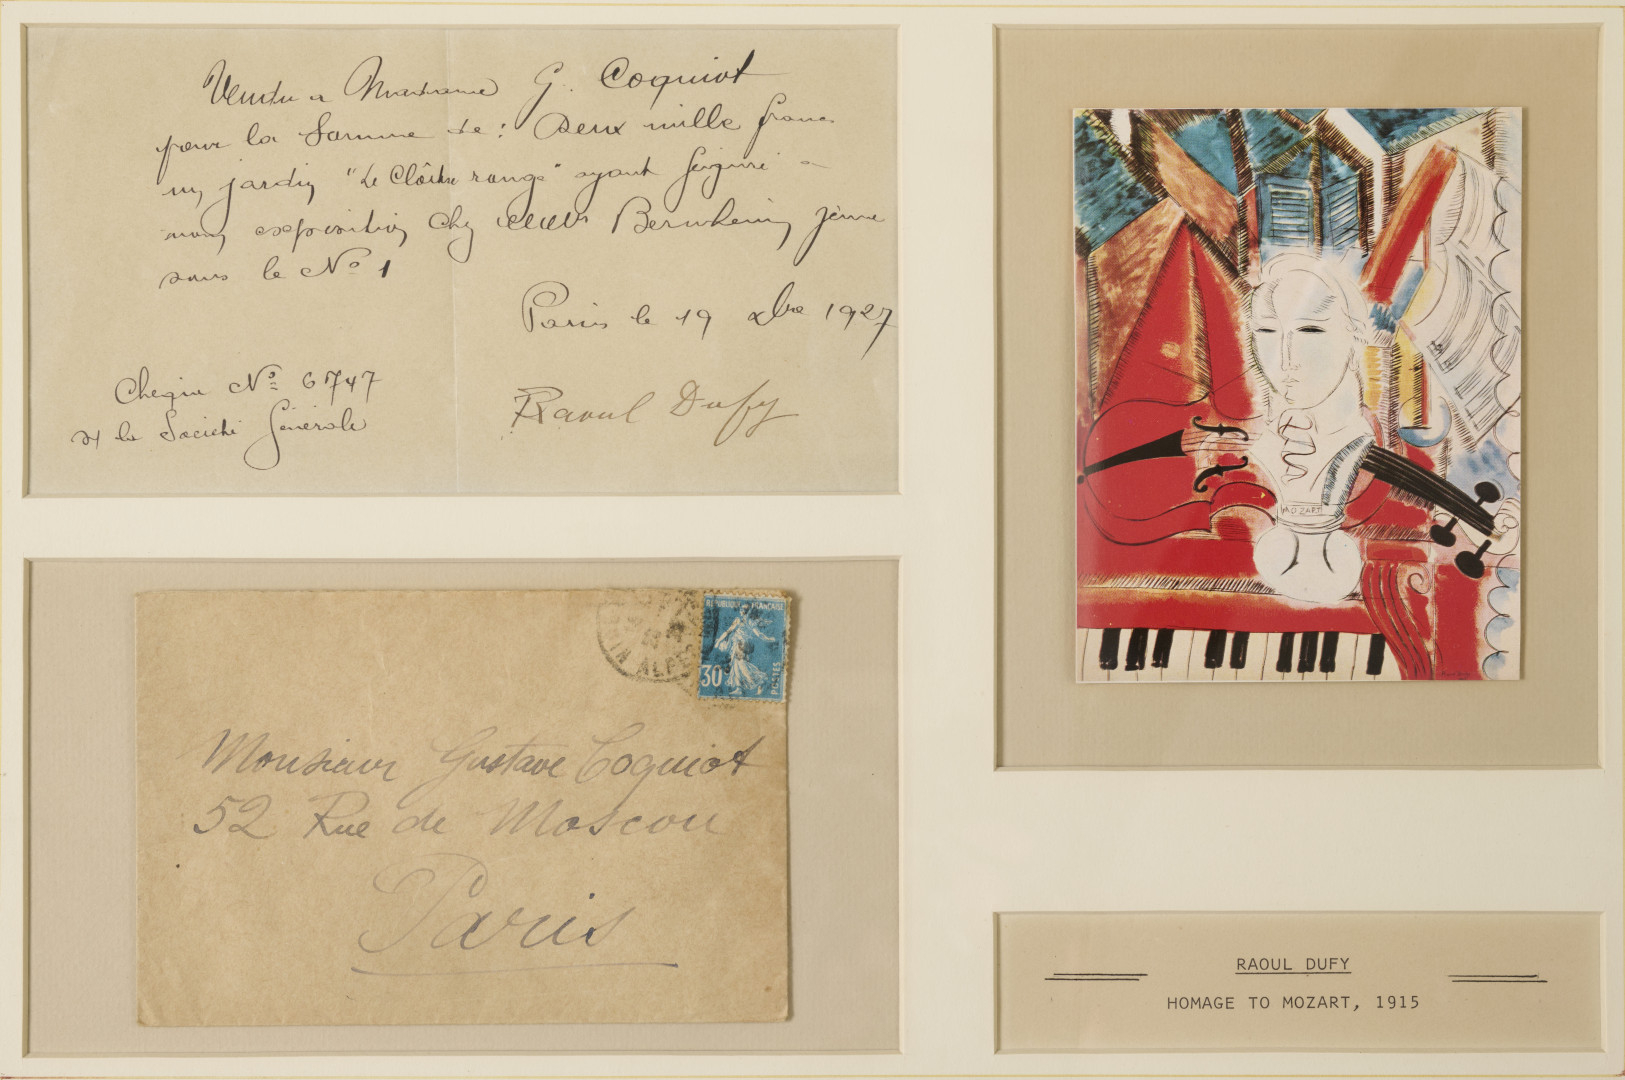 Vendu a Madame G. Coquiot
pour la Somme de : Deux mille francs
un jardin "Le Cloître rouge" ayant figuré a
mon exposition chez Bernheim jeune
sous le Nº 1
Paris le 19 xbre 1927
Cheque Nº 6747
la Société Générale
Raoul Dufy
REPUBLIQUE FRANÇAISE
30
POSTES
ALPES
Monsieur Gustave Coquiot
52 Rue de Moscou
Paris
MOZART
RAOUL DUFY
HOMAGE TO MOZART, 1915